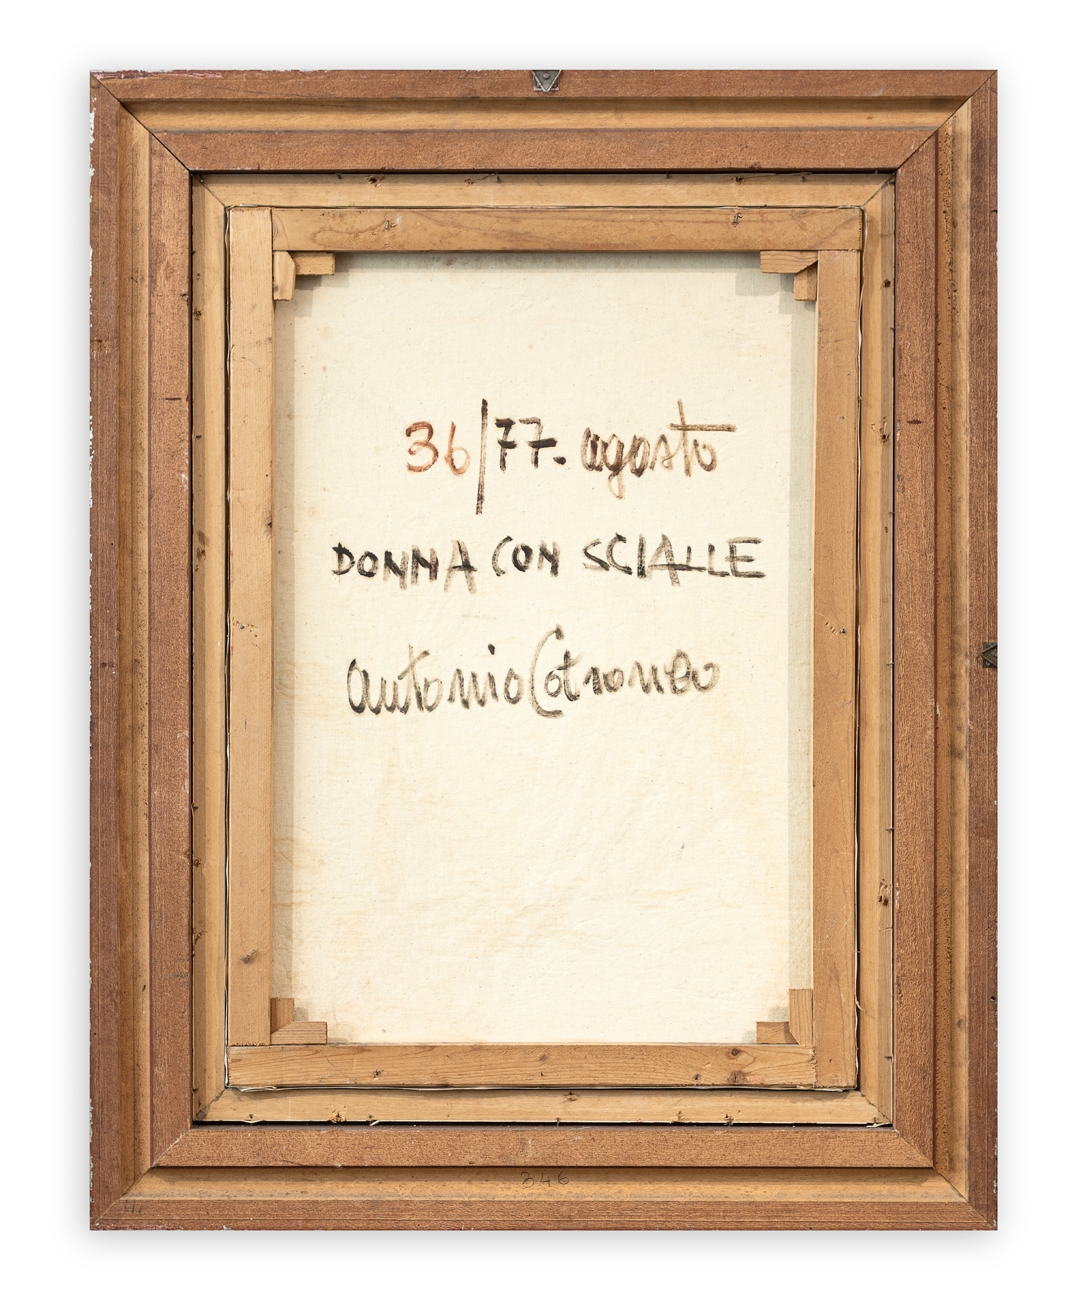 36/77. agosto
DONNA CON SCIALLE
Antonio Cotroneo
346